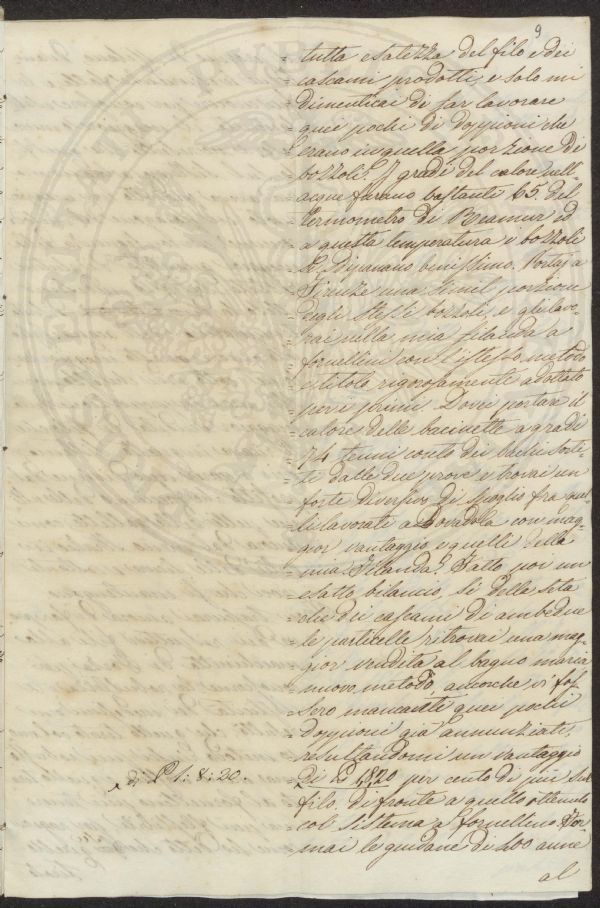 9
=tutta esatezza del filo e dei
=cascami prodotti, e solo mi
=dimenticai di far lavorare
=quei pochi di doppioni che
=erano in quella porzione di
=bozzoli. I gradi del calore nell'
=acque furano bastanti 65. del
=termometro di Reamur ed
=a questa temperatura i bozzoli
=si dipanano benissimo. Portai a
=Firenze una simil porzione
=degli stessi bozzoli, e gli lavo=
=rai nella mia filanda a
=fornellini con l'istesso metodo
=e titolo rigorosamente adottato
=per i primi. Dovei portare il
=calore delle bacinelle a gradi
=74 tenni conto dei
=ti dalle due prove e trovai un
=forte diverso di spoglio fra quel=
=li lavorati a Dovadola con mag=
=gior vantaggio e quelli della
=mia Filanda. Fatto poi un
=esatto bilancio, si della seta
=che dei cascami di ambedue
=le particelle ritrovai una mag=
=gior vendita al bagno maria
=nuovo metodo, ancorche vi fos=
=sero mancanti quei pochi
=doppioni già annunziati,
=resultandomi un vantaggio
=di £ 1,8,20 per cento di più sul
=filo di fronte a quello ottenuto
=col sistema a fornellino. For=
=mai le guidane di 400 anne
al
=di £ 1: 8: 20.